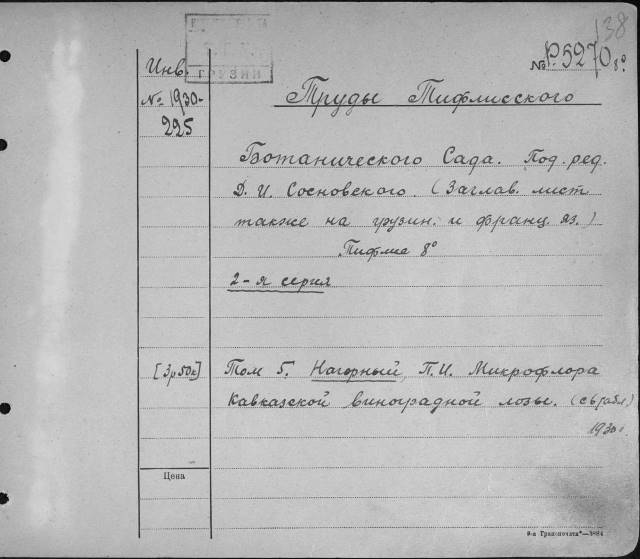 138
№ Р.5270 8°
ГРУЗИИ
Инв.
№ 1930-
225
Труды Тифлисского
Ботанического Сада. Под. ред.
Д. И. Сосновского. (Заглав. лист
также на грузин. и франц. яз.)
Тифлис 8°
2-я серия
[3р50к]
Том 5. Нагорный, П. И. Микрофлора
Кавказской виноградной лозы. (с 6 табл)
1930.
Цена